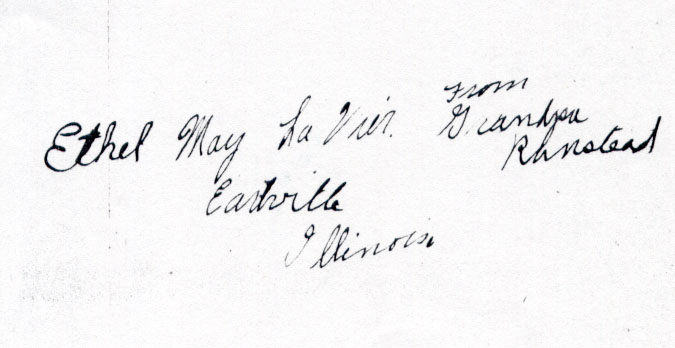 Ethel May La Vier. From
Grandpa
Ranstead
Eastville
Illinois